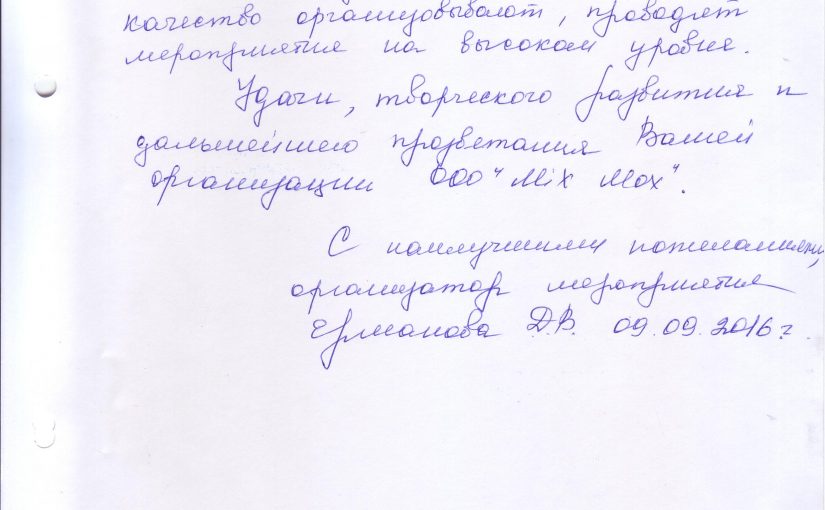 качество организовывают, проводят
мероприятия на высоком уровне.
Удачи, творческого развития и
дальнейшего процветания Вашей
организации ООО "Mix Max".
С наилучшими пожеланиями,
организатор мероприятия
Ермакова Д.В. 09.09.2016 г.